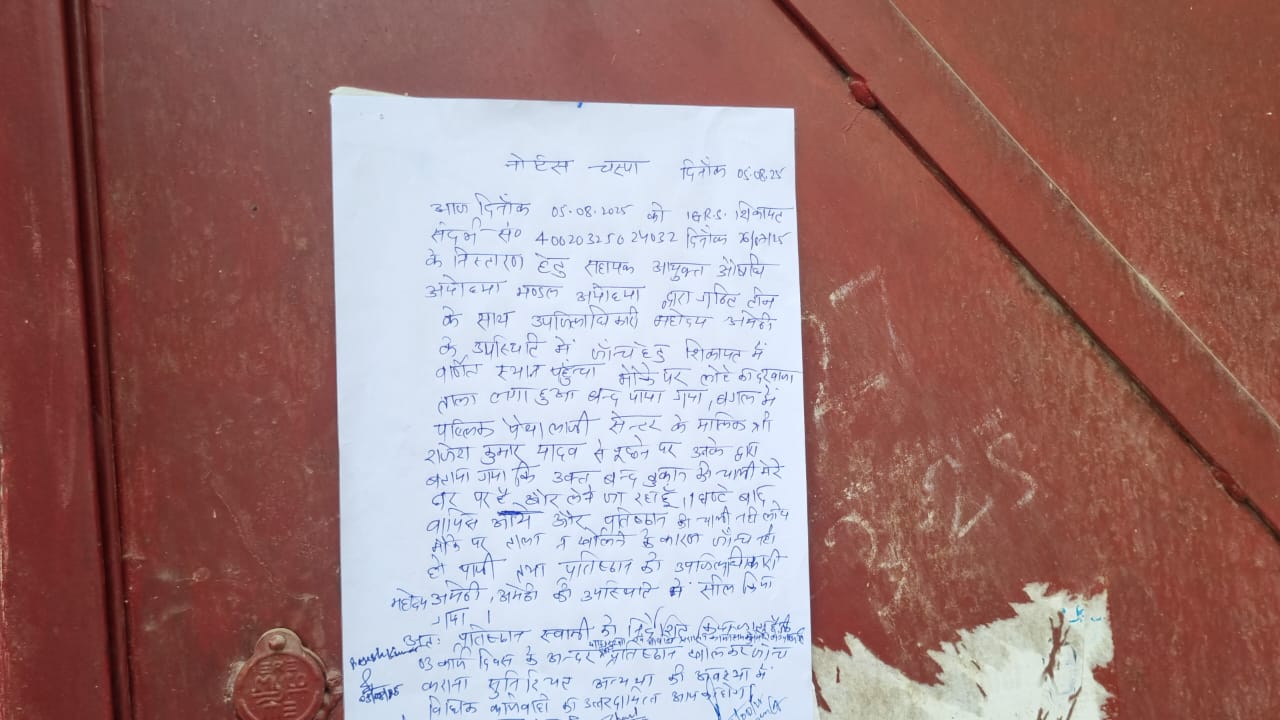 नोटिस चस्पा दिनाँक 05.08.25
आज दिनाँक 05.08.2025 को IGRS. शिकायत
संदर्भ सं० 40020325024032 दिनाँक 26/07/25
के निस्तारण हेतु सहायक आयुक्त औषधि
अयोध्या मण्डल अयोध्या द्वारा गठित टीम
के साथ उपजिलाधिकारी महोदय अमेठी
के उपस्थिति में जाँच हेतु शिकायत में
वर्णित स्थान पहुंचा मौके पर लोहे का दरवाजा
ताला लगा हुआ बन्द पाया गया, बगल में
पब्लिक पैथालाजी सेन्टर के मालिक श्री
राजेश कुमार यादव से पूछने पर उनके द्वारा
बताया गया कि उक्त बन्द दुकान की चाभी मेरे
घर पर है और लेने जा रहा हूँ, 1 घण्टे बाद
वापिस आये और प्रतिष्ठान की चाभी नही लाये
मौके पर ताला न खोलने के कारण जाँच नही
हो पायी तथा प्रतिष्ठान को उपजिलाधिकारी
महोदय अमेठी, अमेठी की उपस्थिति में सील किया
गया ।
अतः प्रतिष्ठान स्वामी को निर्देशित किया जाता है कि
03 कार्य दिवस के अन्दर प्रतिष्ठान खोलकर जाँच
कराना सुनिश्चित अन्यथा की अवस्था में
विधिक कार्यवाही का उत्तरदायित्व आपका होगा